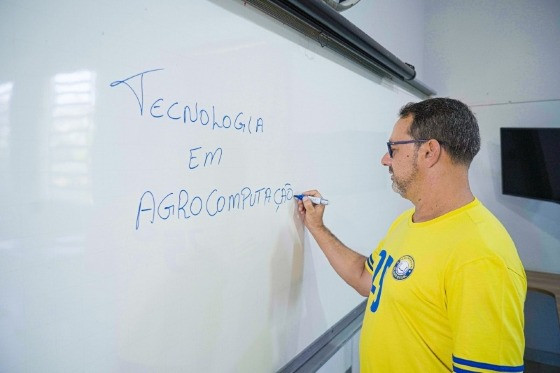 TECNOLOGIA
EM
AGROCOMPUTAÇÃO
25